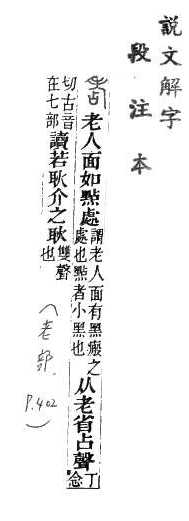 說文解字
段注本
老人面如點處謂老人面有黑瘢之處也點者小黑也从老省占聲丁念
切古音在七部讀若耿介之耿雙聲也
(老部 P.402)